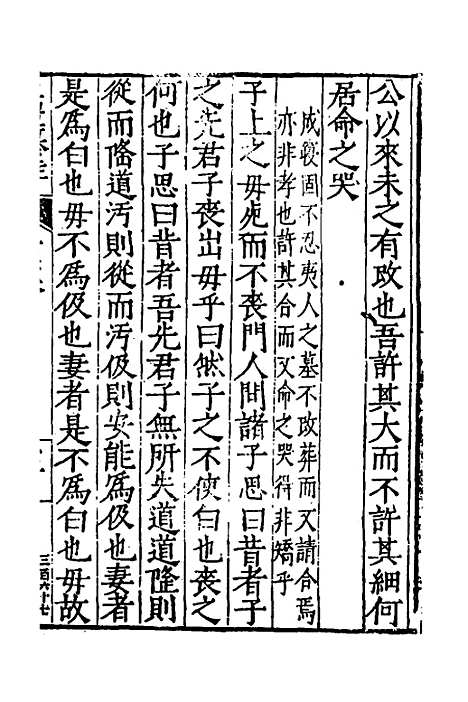 公以來未之有改也吾許其大而不許其細何
居命之哭
成寢固不忍夷人之墓不改葬而又請合焉
亦非孝也許其合而又命之哭得非矯乎
子上之母死而不喪門人問諸子思曰昔者子
之先君子喪出母乎曰然子之不使白也喪之
何也子思曰昔者吾先君子無所失道道隆則
從而隆道汚則從而汚伋則安能爲伋也妻者
是爲白也母不爲伋也妻者是不爲白也母故
三百六十七